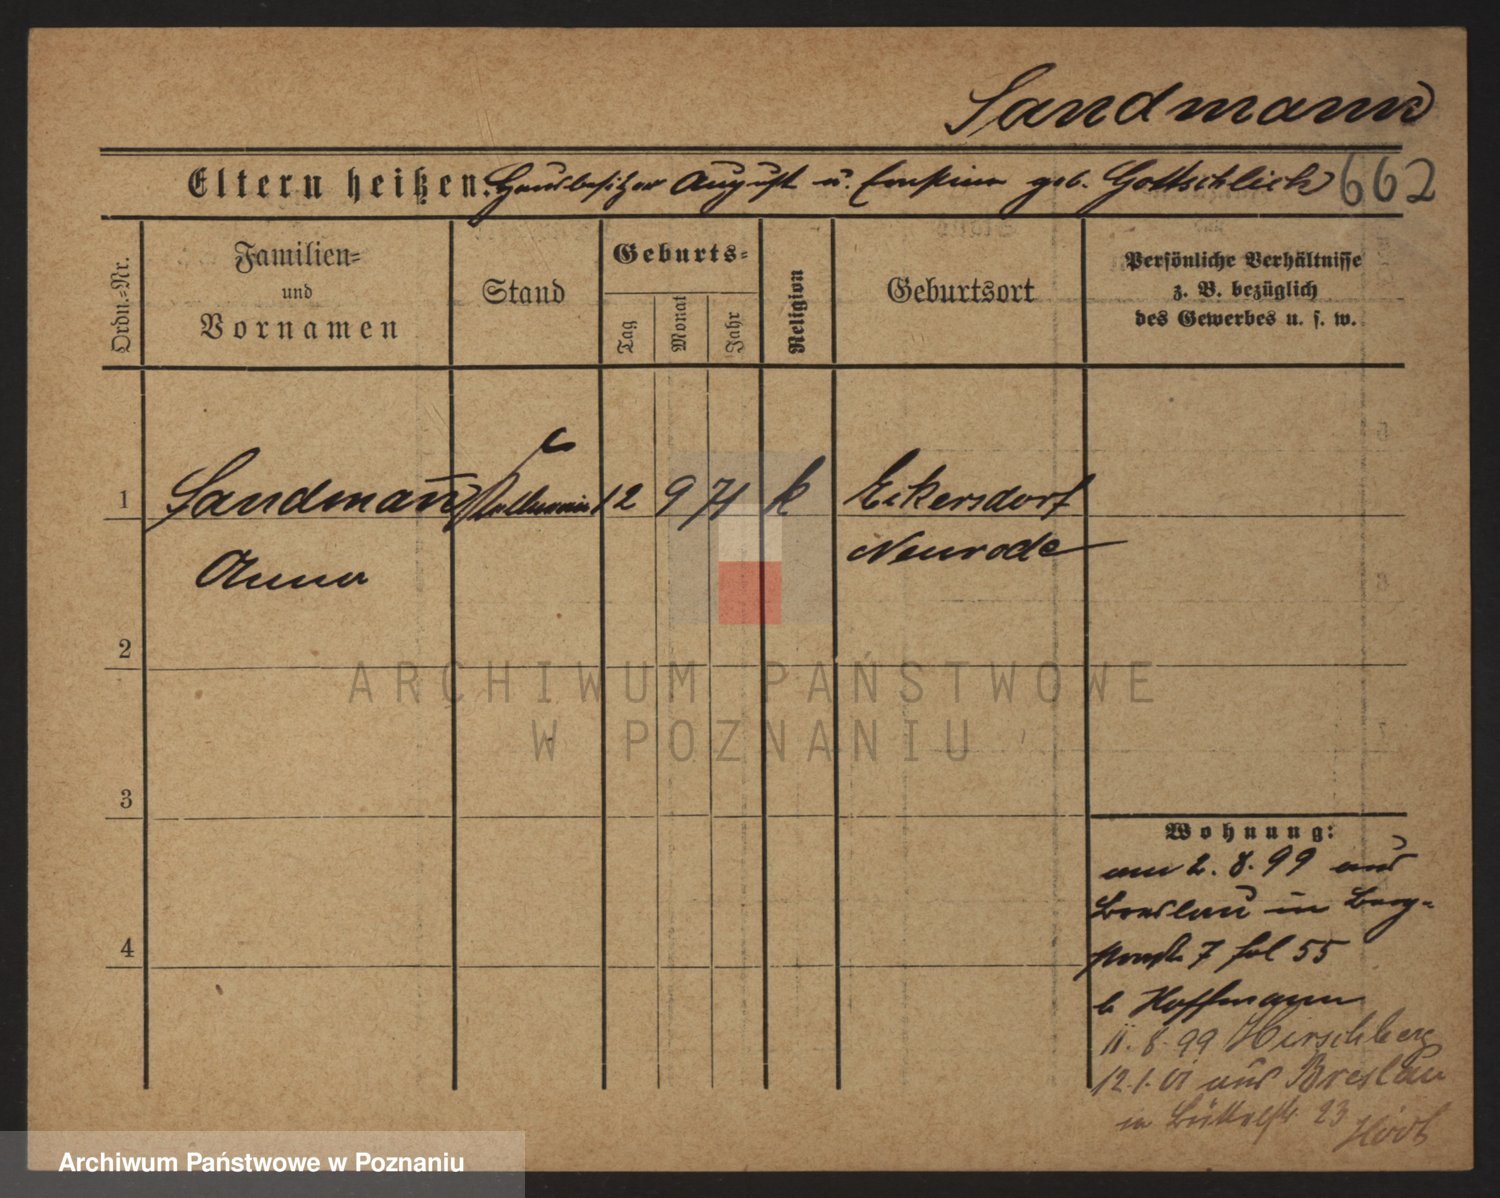 Sandmann
Eltern heißen: Hausbesitzer August u. Ernstine geb. Gottschlich 662
Ordn.=Nr.
Familien=
und
Vornamen
Stand
Geburts=
Tag
Monat
Jahr
Religion
Geburtsort
Persönliche Verhältnisse
z. B. bezüglich
des Gewerbes u. s. w.
1 Sandmann̄ 12 9 74 k Eckersdorf
Anna Neurode
2
ARCHIWUM PAŃSTWOWE
W POZNANIU
3
Wohnung:
am 2.8.99 aus
Breslau in Berg-
straße 7 fol 55
b Hoffmann
4
11.8.99 Hirschberg
12.1.01 aus Breslau
in Büttelstr 23
Archiwum Państwowe w Poznaniu